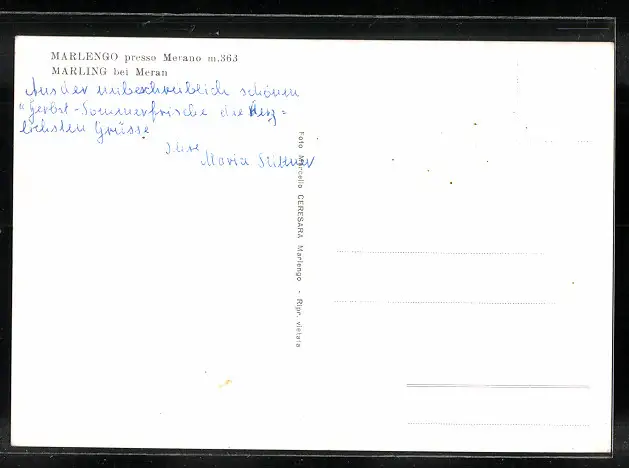 MARLENGO presso Merano m.363
MARLING bei Meran
Aus der unbeschreiblich schönen
"Herbst-Sommerfrische die Herz=
lichsten Grüsse
Ihre
Maria
Foto Marcello CERESARA Marlengo - Ripr. vietata